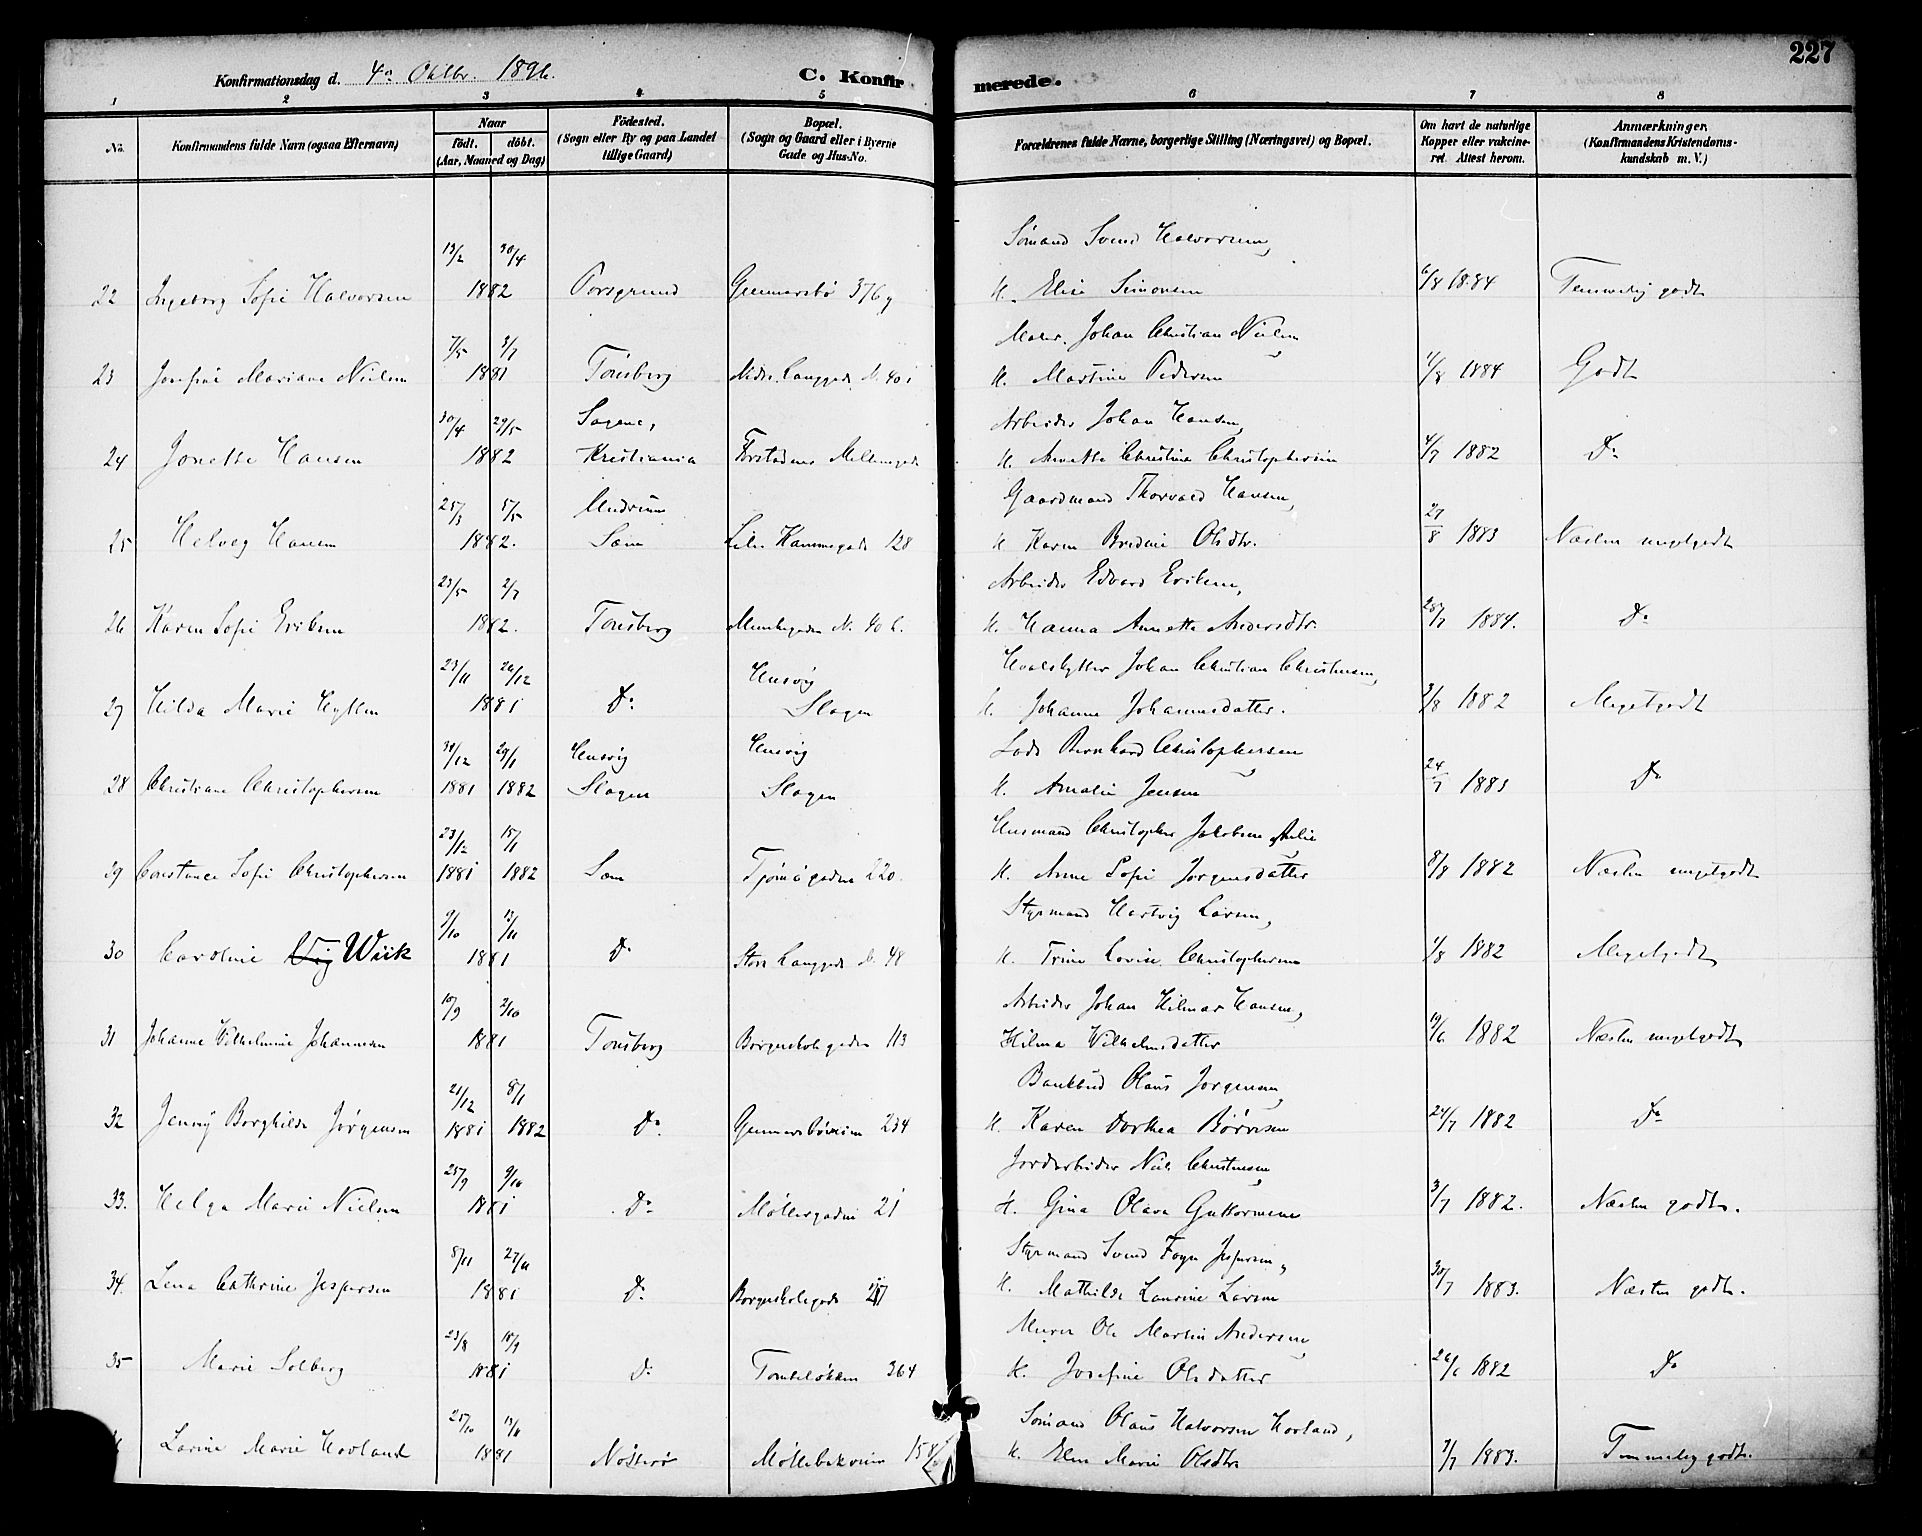 Konfirmationsdag d. 4de Oktbr. 1896.
C. Konfirmerede.
227
1 2 3 4 5 6 7 8
No.
Konfirmandens fulde Navn (ogsaa Efternavn)
Naar
födt. döbt.
(Aar, Maaned og Dag)
Födested.
(Sogn eller By og paa Landet
tillige Gaard)
Bopæl.
(Sogn og Gaard eller i Byerne
Gade og Hus-No.
Forældrenes fulde Navne, borgerlige Stilling (Næringsvei) og Bopæl.
Om havt de naturlige
Kopper eller vakcine-
ret. Attest herom.
Anmærkninger.
(Konfirmandens Kristendoms-
kundskab m. V.)
13/2 30/4 Sømand Svend Halvorsen,
22 Ingeborg Sofie Halvorsen 1882 Porsgrund Gunnarsbø 376 g H. Elise Simonsen 6/8 1884 Temmelig godt
7/5 3/7 Maler Johan Christian Nielsen
23 Josefine Mariane Nielsen 1881 Tønsberg Nedre Langgade N. 40 i H. Martine Pedersen 4/8 1884 Godt
30/4 29/5 Sagene, Arbeider Johan Hansen,
24 Jonette Hansen 1882 Kristiania Møllergade H. Annette Christine Christophersen 4/7 1882 Do
25/3 5/5 Undrum Gaardmand Thorvald Hansen,
25 Helveg Hansen 1882. Sæm Lille Hammegade 128 H. Karen Bredine Olsdtr. 27/8 1883 Næsten megetgodt
23/5 2/7 Arbeider Edvard Eriksen,
26 Karen Sofie Eriksen 1882. Tønsberg Munkegaden N. 40 b. H. Hanna Annette Andersdtr. 25/7 1884. Do
23/11 26/12 Husvig Hvalskytter Johan Christian Christensen,
27 Hilda Marie Hyllen 1881 Do Slagen H. Johanne Johannesdatter. 3/8 1882 Megetgodt
30/12 29/1 Husvig Husvig Lods Bernhard Christophersen
28 Christiane Christophersen 1881 1882 Slagen Slagen H. Amalie Jensen 24/7 1883 Do
23/12 15/1 Husmand Christopher Jakobsen Aulie
29 Constance Sofie Christophersen 1881 1882 Sæm Tjømøgaden 220. H. Anne Sofie Jørgensdatter 8/8 1882 Næsten megetgodt
9/10 13/11 Styrmand Hartvig Larsen,
30 Caroline Vig Wiik 1881 Do Store Langgade N. 48 H. Trine Lovise Christophersen 1/8 1882 Megetgodt
10/9 2/10 Arbeider Johan Hilmar Hansen,
31 Johanne Wilhelmine Johannesen 1881 Tønsberg Borgeskolegaden 113 Hilma Wilhelmsdatter 19/6 1882 Næsten megetgodt
21/12 8/1 Bankbud Olaus Jørgensen,
32 Jenny Borghilde Jørgensen 1881 1882 Do Gunnarsbøveien 234 H. Karen Dorthea Børresen 24/7 1882 Do
25/7 9/10 Jordarbeider Nils Christensen,
33. Helga Marie Nielsen 1881 Do Møllergaden 21 H. Gina Olava Guttormsen 3/7 1882. Næsten godt.
8/11 27/11 Styrmand Svend Foyn Jespersen,
34. Lena Cathrine Jespersen 1881 Do Borgeskolegade H. Mathilde Laurine Larsen 30/7 1883. Næsten godt.
23/8 10/9 Murer Ole Martin Andersen,
35 Marie Solberg 1881 Do 364 H. Josefine Olsdatter 26/6 1882 Do
25/10 13/11 Sømand Olaus Halvorsen Hovland,
Larine Marie Hovland 1881 Nøtterø Møllebakveien 158 H. Elen Marie Olsdtr 3/7 1883. Temmelig godt.